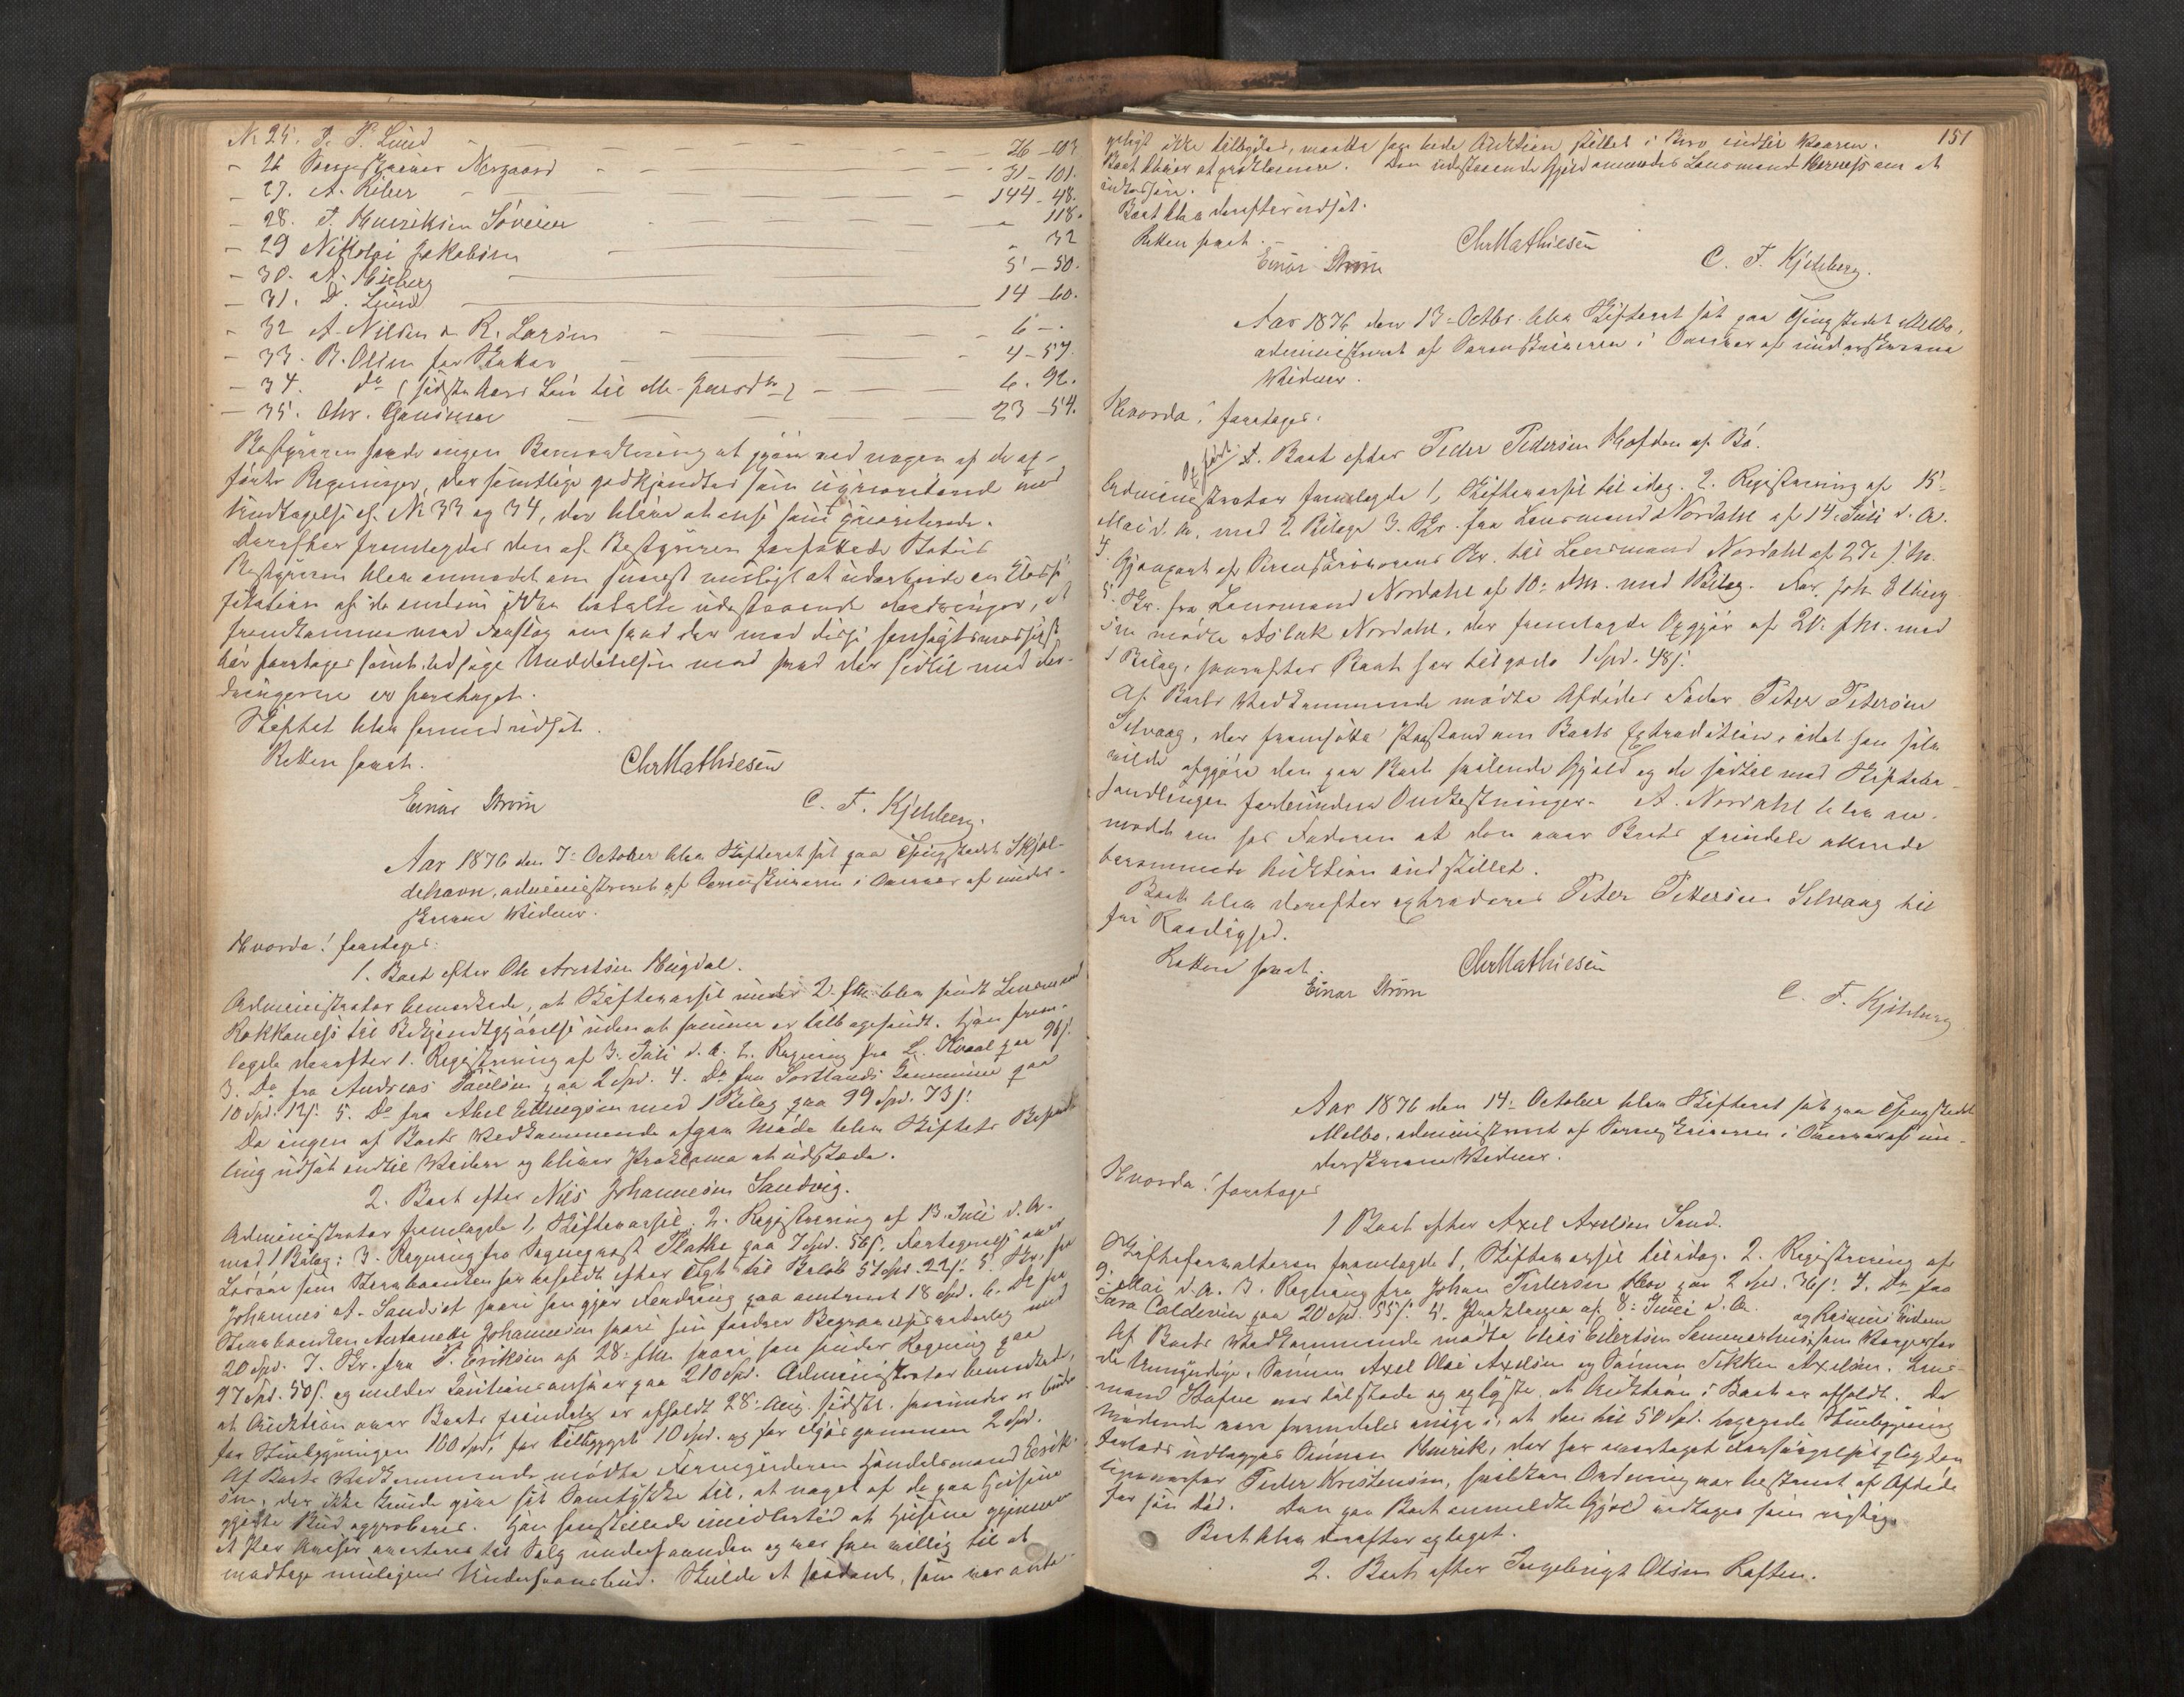 No 25. P. P. Lund — 26 — 103
" 26 Sorenskriver Norgaard — 31 — 101.
— 27. A. Riber — 144 — 48.
— 28. P. Henriksen Söveier — " 118.
— 29 Nikolai Jakobsen — " 32
— 30. A. Hieberg — 5 — 50.
— 31. D. Lund — 14 — 60.
" 32 A. Nilsen & R. Larsen — 6 — "
— 33. B. Olsen for Skatter — 4 — 57.
— 34. do (sidste Aars Løn til — 6. 92.
— 35. Chr. — 23 — 54.
Bestyreren havde ingen Bemærkning at gjøre ved nogen af de op-
førte Regninger, der samtlige godkjendtes som uprioriterede med
Undtagelse af No 33 og 34, der bliver at anse som prioriterede.
Derefter fremlagdes den af Bestyreren forfattede Status
Bestyreren blev anmodet om snarest muligt at udarbeide en Klassi-
fikation af de endnu ikke betalte udestaaende Fordringer, at
fremkomme med Forslag om hvad der med disse hensigtsmæssigst
bør foretages samt ledsage Meddelelsen med hvad der hidtil med For-
dringerne er foretaget.
Skiftet blev hermed udsat.
Retten hævet.
Chr Mathiesen
Einar Strøm C. F. Kjelberg.
Aar 1876 den 7de October blev Skifteret sat paa Thingstedet Skjol-
dehavn, administreret af Sorenskriveren i Overvær af under-
skrevne Vidner.
Hvorda! foretoges:
1. Boet efter Ole Arntsen Heigdal.
Administrator bemærkede, at Skiftevarsel under 2 f. M. blev sendt Lensmand
Rokkones til Bekjendtgjørelse uden at samme er tilbagesendt. Han frem-
lagde derefter 1. Registrering af 3. Juli d. A. 2. Regning fra L. Kvaal paa 96 s.
3. Do fra Andreas Paulsen paa 2 Spd. 4. Do fra Sortlands Kommune paa
10 Spd. 12 s. 5. Do fra Abel Ellingsen med 1 Bilag paa 99 Spd. 73 s.
Da ingen af Boets Vedkommende afgav Møde blev Skiftets Behand-
ling udsat indtil Videre og bliver Proklama at udstede.
2. Boet efter Nils Johannesen Sandvig.
Administrator fremlagde 1, Skiftevarsel. 2. Registrering af 13. Juli d. A.
med 1 Bilag: 3. Regning fra Sogneprest Flathe paa 7 Spd. 56 s. Fortegnelse over
Løsøre som Stervboenken har beholdt efter Taxt til Beløb 51 Spd. 22 s. 5. Skr. fra
Johannes A. Sandvik hvori han gjør Fordring paa omtrent 18 Spd. 6. Do fra
Stervboenken Antonette Johannesen hvori hun fordrer Begravelsesudlæg med
20 Spd. 7. Skr. fra P. Eriksen af 28. f. M. hvori han sender Regning paa
97 Spd. 50 s. og melder Kautionsansvar paa 210 Spd. Administrator bemærkede,
at Auktion over Boets Eiendele er afholdt 28. Aug. sidstl. hvorunder er budet
for Hovedbygningen 100 Spd, for Tilbygget 10 Spd. og for Fjøsgammen 2 Spd.
Af Boets Vedkommende mødte Formynderen Handelsmand Erik-
sen, der ikke kunde give sit Samtykke til, at noget af de paa Husene
gjorte Bud approberes. Han henstillede imidlertid at Husene gjennem
et Par Aviser averteres til Salg underhaanden og var han villig til at
modtage muligens Underhaandsbud. Skulde et saadant, som var anta-
151
geligt ikke tilbydes, maatte han bede Auktion stillet i Bero indtil Vaaren.
Boet bliver at proklamere. Den udestaaende Gjeld anmodes Lensmand Herness om at
indkassere.
Boet blev derefter udsat.
Retten hævet.
Chr Mathiesen
Einar Strøm C. F. Kjelberg.
Aar 1876 den 13de Octbr. blev Skifteret sat paa Thingstedet Melbo,
administreret af Sorenskriveren i Overvær af underskrevne
Vidner.
Hvorda! foretoges:
1. Boet efter Peder Pedersen Hofden af Bø.
Administrator fremlagde 1, Skiftevarsel til idag. 2. Registrering af 15de
Mai d. A. med 2 Bilage 3. Skr. fra Lensmand Nordahl af 14. Juli d. A.
4. Gjenpart af Sorenskriverens Skr. til Lensmand Nordahl af 27. f. M.
5. Skr. fra Lensmand Nordahl af 10. ds. M. med 1 Bilag. For Joh. Elling-
sen mødte Aslak Nordahl, der fremlagde Opgjør af 21. f. M. med
1 Bilag, hvorefter Boet har tilgode 1 Spd. 48 s.
Af Boets Vedkommende mødte Afdødes Fader Peter Petersen
Selvaag, der fremsatte Paastand om Boets Extradition, idet han selv
vilde afgjøre den paa Boet hvilende Gjæld og de hidtil med Skiftebe-
handlingen forbundne Omkostninger. A. Nordahl blev an-
modet om hos Faderen at den over Boets Eiendele
berammede Auktion indstillet.
Boet blev derefter extraderet Peter Pettersen Selvaag til
fri Raadighed.
Retten hævet.
Chr Mathiesen
Einar Strøm C. F. Kjelberg
Aar 1876 den 14de October blev Skifteret sat paa Thingstedet
Melbo, administreret af Sorenskriveren i Overvær af un-
derskrevne Vidner.
Hvorda! foretoges
1 Boet efter Axel Axelsen Sand.
Skifteforvalteren fremlagde 1, Skiftevarsel til idag. 2. Registrering af
9. Mai d. A. 3. Regning fra Johan Pedersen Hov paa 2 Spd. 36 s. 4. Do fra
Sara Caldevin paa 20 Spd. 55 s. 4. Proklama af 8. Juni d. A.
og Rasmus Eidem
Af Boets Vedkommende mødte Elias Eilertsen Sommarhus som Værger for
de Umyndige, Sønnen Axel Olai Axelsen og Sønnen Fikken Axelsen. Lens-
mand Hafne var tilstede og oplyste, at Auktion i Boet er afholdt. De
Mødende vare fremdeles enige i, at den til 50 Spd. taxerede Husbygning
forlods udlægges Sønnen Henrik, der har overtaget Forsørgelsespligten
ligeoverfor Peder Kristensen, hvilken Ordning var bestemt af Afdøde
før sin Død. Den paa Boet anmeldte Gjæld vedtages som rigtig.
Boet blev derefter optaget.
2. Boet efter Ingebrigt Olsen Raften.